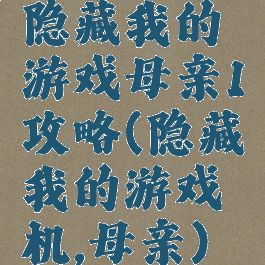 隐藏我的
游戏母亲1
攻略(隐藏
我的游戏
机,母亲)